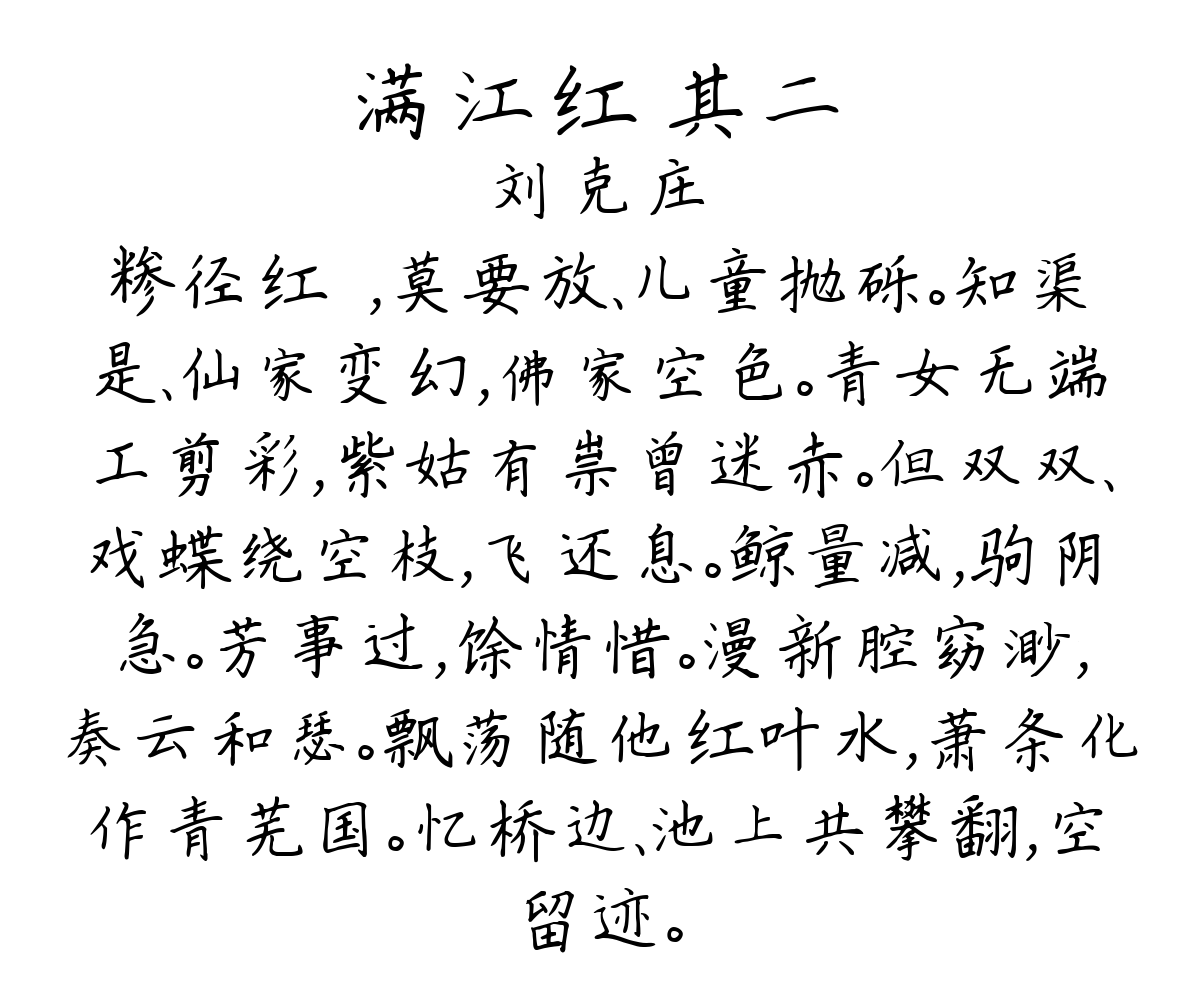 满江红 其二
刘克庄
糁径红 ,莫要放、儿童抛砾。知渠
是、仙家变幻,佛家空色。青女无端
工剪彩,紫姑有祟曾迷赤。但双双、
戏蝶绕空枝,飞还息。鲸量减,驹阴
急。芳事过,馀情惜。漫新腔窈渺,
奏云和瑟。飘荡随他红叶水,萧条化
作青芜国。忆桥边、池上共攀翻,空
留迹。